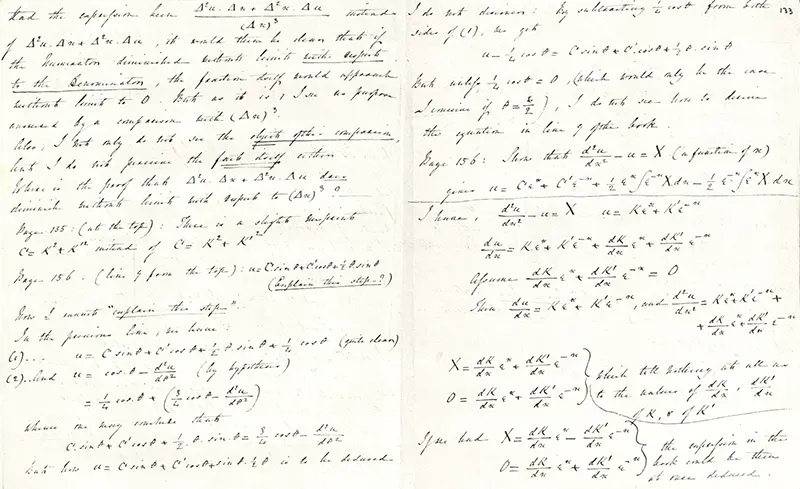 Had the expression been (Δ²u.Δx + Δ²x.Δu)/(Δx)³ instead
of Δ²u.Δx + Δ²x.Δu, it would then be clear that if
the Numerator diminished without limit with respect
to the Denominator, the fraction itself would approach
without limit to 0. But as it is, I see no purpose
answered by a comparison with (Δx)³.
Also; I not only do not see the object of the comparison,
but I do not perceive the fact itself either.
Where is the proof that Δ²u.Δx + Δ²x.Δu does
diminish without limit with respect to (Δx)³?
Page 135: (at the top): There is a slight misprint
C = K² + K'² instead of C = K² + K'²
Page 156. (line 9 from the top): u = C sin θ + C' cos θ + ½ θ. sin θ
(Explain this step?)
Now I cannot "explain this step".
In the previous line, we have:
(1).... u = C sin θ + C' cos θ + ½ θ. sin θ + ¼ cos θ (quite clear)
(2). And u = cos θ − d²u/dθ² (by hypothesis)
= ¼ cos θ + (¾ cos θ − d²u/dθ²)
whence one may conclude that
C sin θ + C' cos θ + ½. θ. sin θ = ¾ cos θ − d²u/dθ²
But how u = C sin θ + C' cos θ + sin θ. ½ θ is to be deduced
133
I do not discover: By subtracting ¼ cos θ from both
sides of (1), we get
u − ¼ cos θ = C sin θ + C' cos θ + ½ θ. sin θ
But unless ¼ cos θ = 0, (which would only be the case
I conceive if θ = π/2), I do not see how to derive
the equation in line 9 of the book.
Page 156: Show that d²u/dx² − u = X (a function of x)
gives u = Cεˣ + C'ε⁻ˣ + ½ εˣ∫ε⁻ˣX dx − ½ ε⁻ˣ∫εˣX dx
I have, d²u/dx² − u = X u = Kεˣ + K'ε⁻ˣ
du/dx = Kεˣ + K'ε⁻ˣ + dK/dx εˣ + dK'/dx ε⁻ˣ
Assume dK/dx εˣ + dK'/dx ε⁻ˣ = 0
Then du/dx = Kεˣ + K'ε⁻ˣ, and d²u/dx² = Kεˣ + K'ε⁻ˣ +
+ dK/dx εˣ + dK'/dx ε⁻ˣ
X = dK/dx εˣ + dK'/dx ε⁻ˣ
0 = dK/dx εˣ + dK'/dx ε⁻ˣ
which tell nothing at all as
to the values of dK/dx, dK'/dx
of K, & of K'
If we had X = dK/dx εˣ − dK'/dx ε⁻ˣ
0 = dK/dx εˣ + dK'/dx ε⁻ˣ
the expression in the
book could be then
at once deduced.